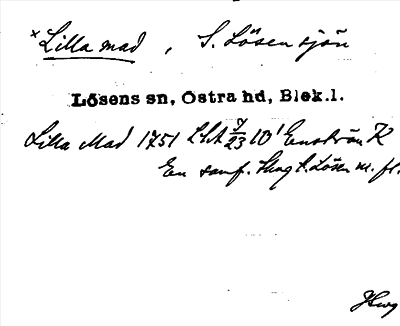 × Lilla mad, S. Lösensjön
Lösens sn, Östra hd, Blek.l.
Lilla Mad 1751 LSA 7/23 10¹ Enström K
En samf. Skog t. Lösen m. fl.
Hwg